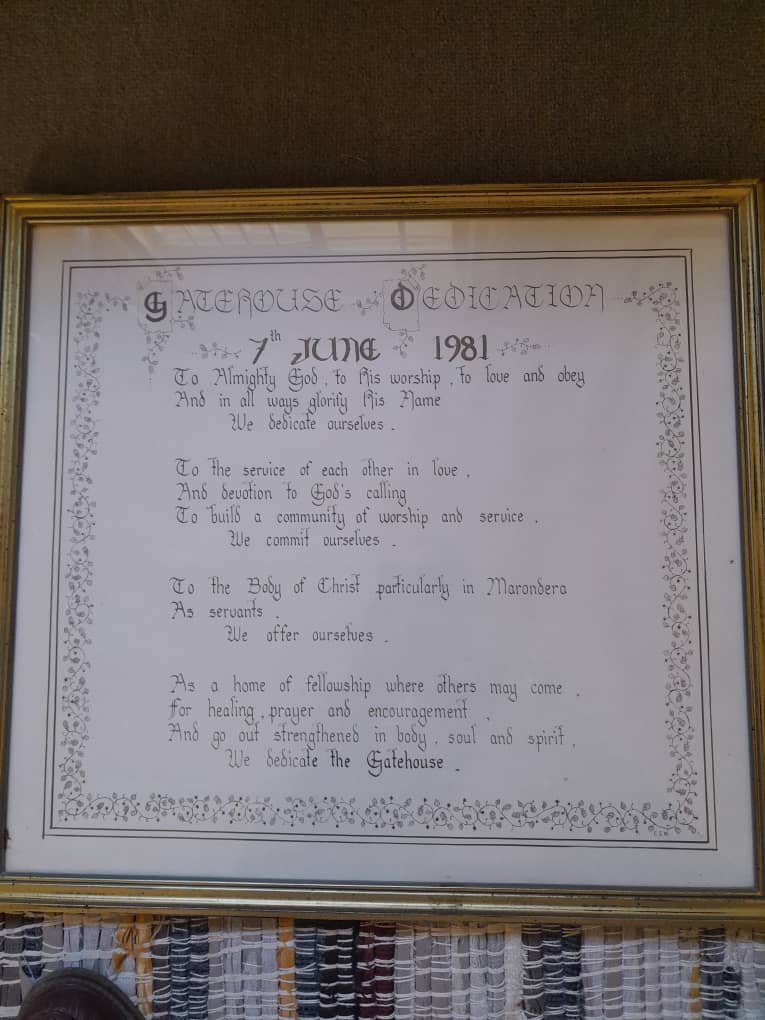 GATEHOUSE DEDICATION
7th JUNE 1981
To Almighty God, to His worship, to love and obey
And in all ways glorify His Name
We dedicate ourselves.
To the service of each other in love,
And devotion to God's calling
To build a community of worship and service.
We commit ourselves.
To the Body of Christ particularly in Marondera
As servants.
We offer ourselves.
As a home of fellowship where others may come,
For healing, prayer and encouragement,
And go out strengthened in body, soul and spirit,
We dedicate the Gatehouse.